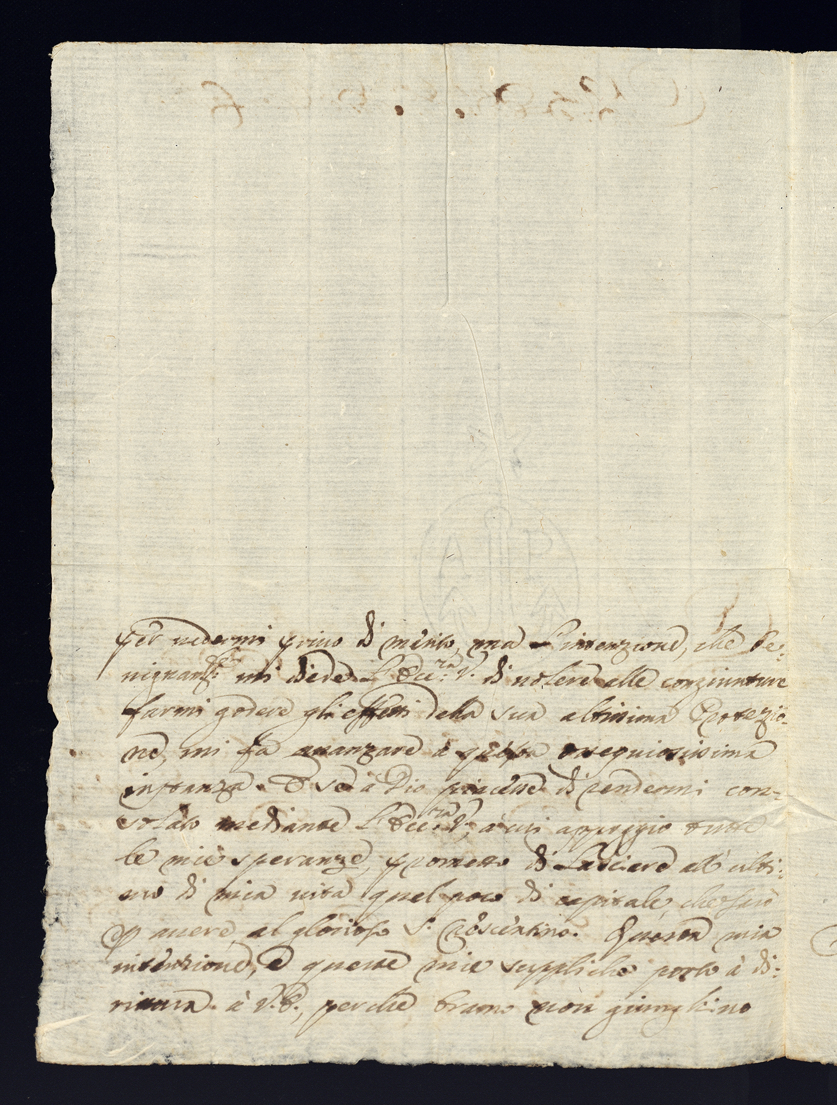 per vedermi privo di merito, ma l'intenzione, che be-
nignam.te mi diede l'Ecc.za V. di volere alle congiunture
farmi godere gli effetti della sua altissima Protezio-
ne, mi fa avanzare à questa ossequiosissima
instanza. E se à Dio piacesse di rendermi con-
solato mediante l'Ecc.za V., a cui appoggio tutte
le mie speranze, prometto di lasciare all' ulti-
mo di mia vita quel poco di capitale, che sarò
p avere, al glorioso S. Questa mia
intenzione, e queste mie suppliche porto à di-
rittura à V.E., perche bramo non giunghino
A P